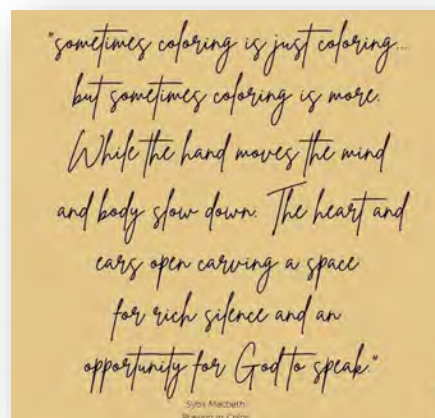 "sometimes coloring is just coloring...
but sometimes coloring is more.
While the hand moves the mind
and body slow down. The heart and
ears open carving a space
for rich silence and an
opportunity for God to speak."
Sybil Macbeth
Praying in Color